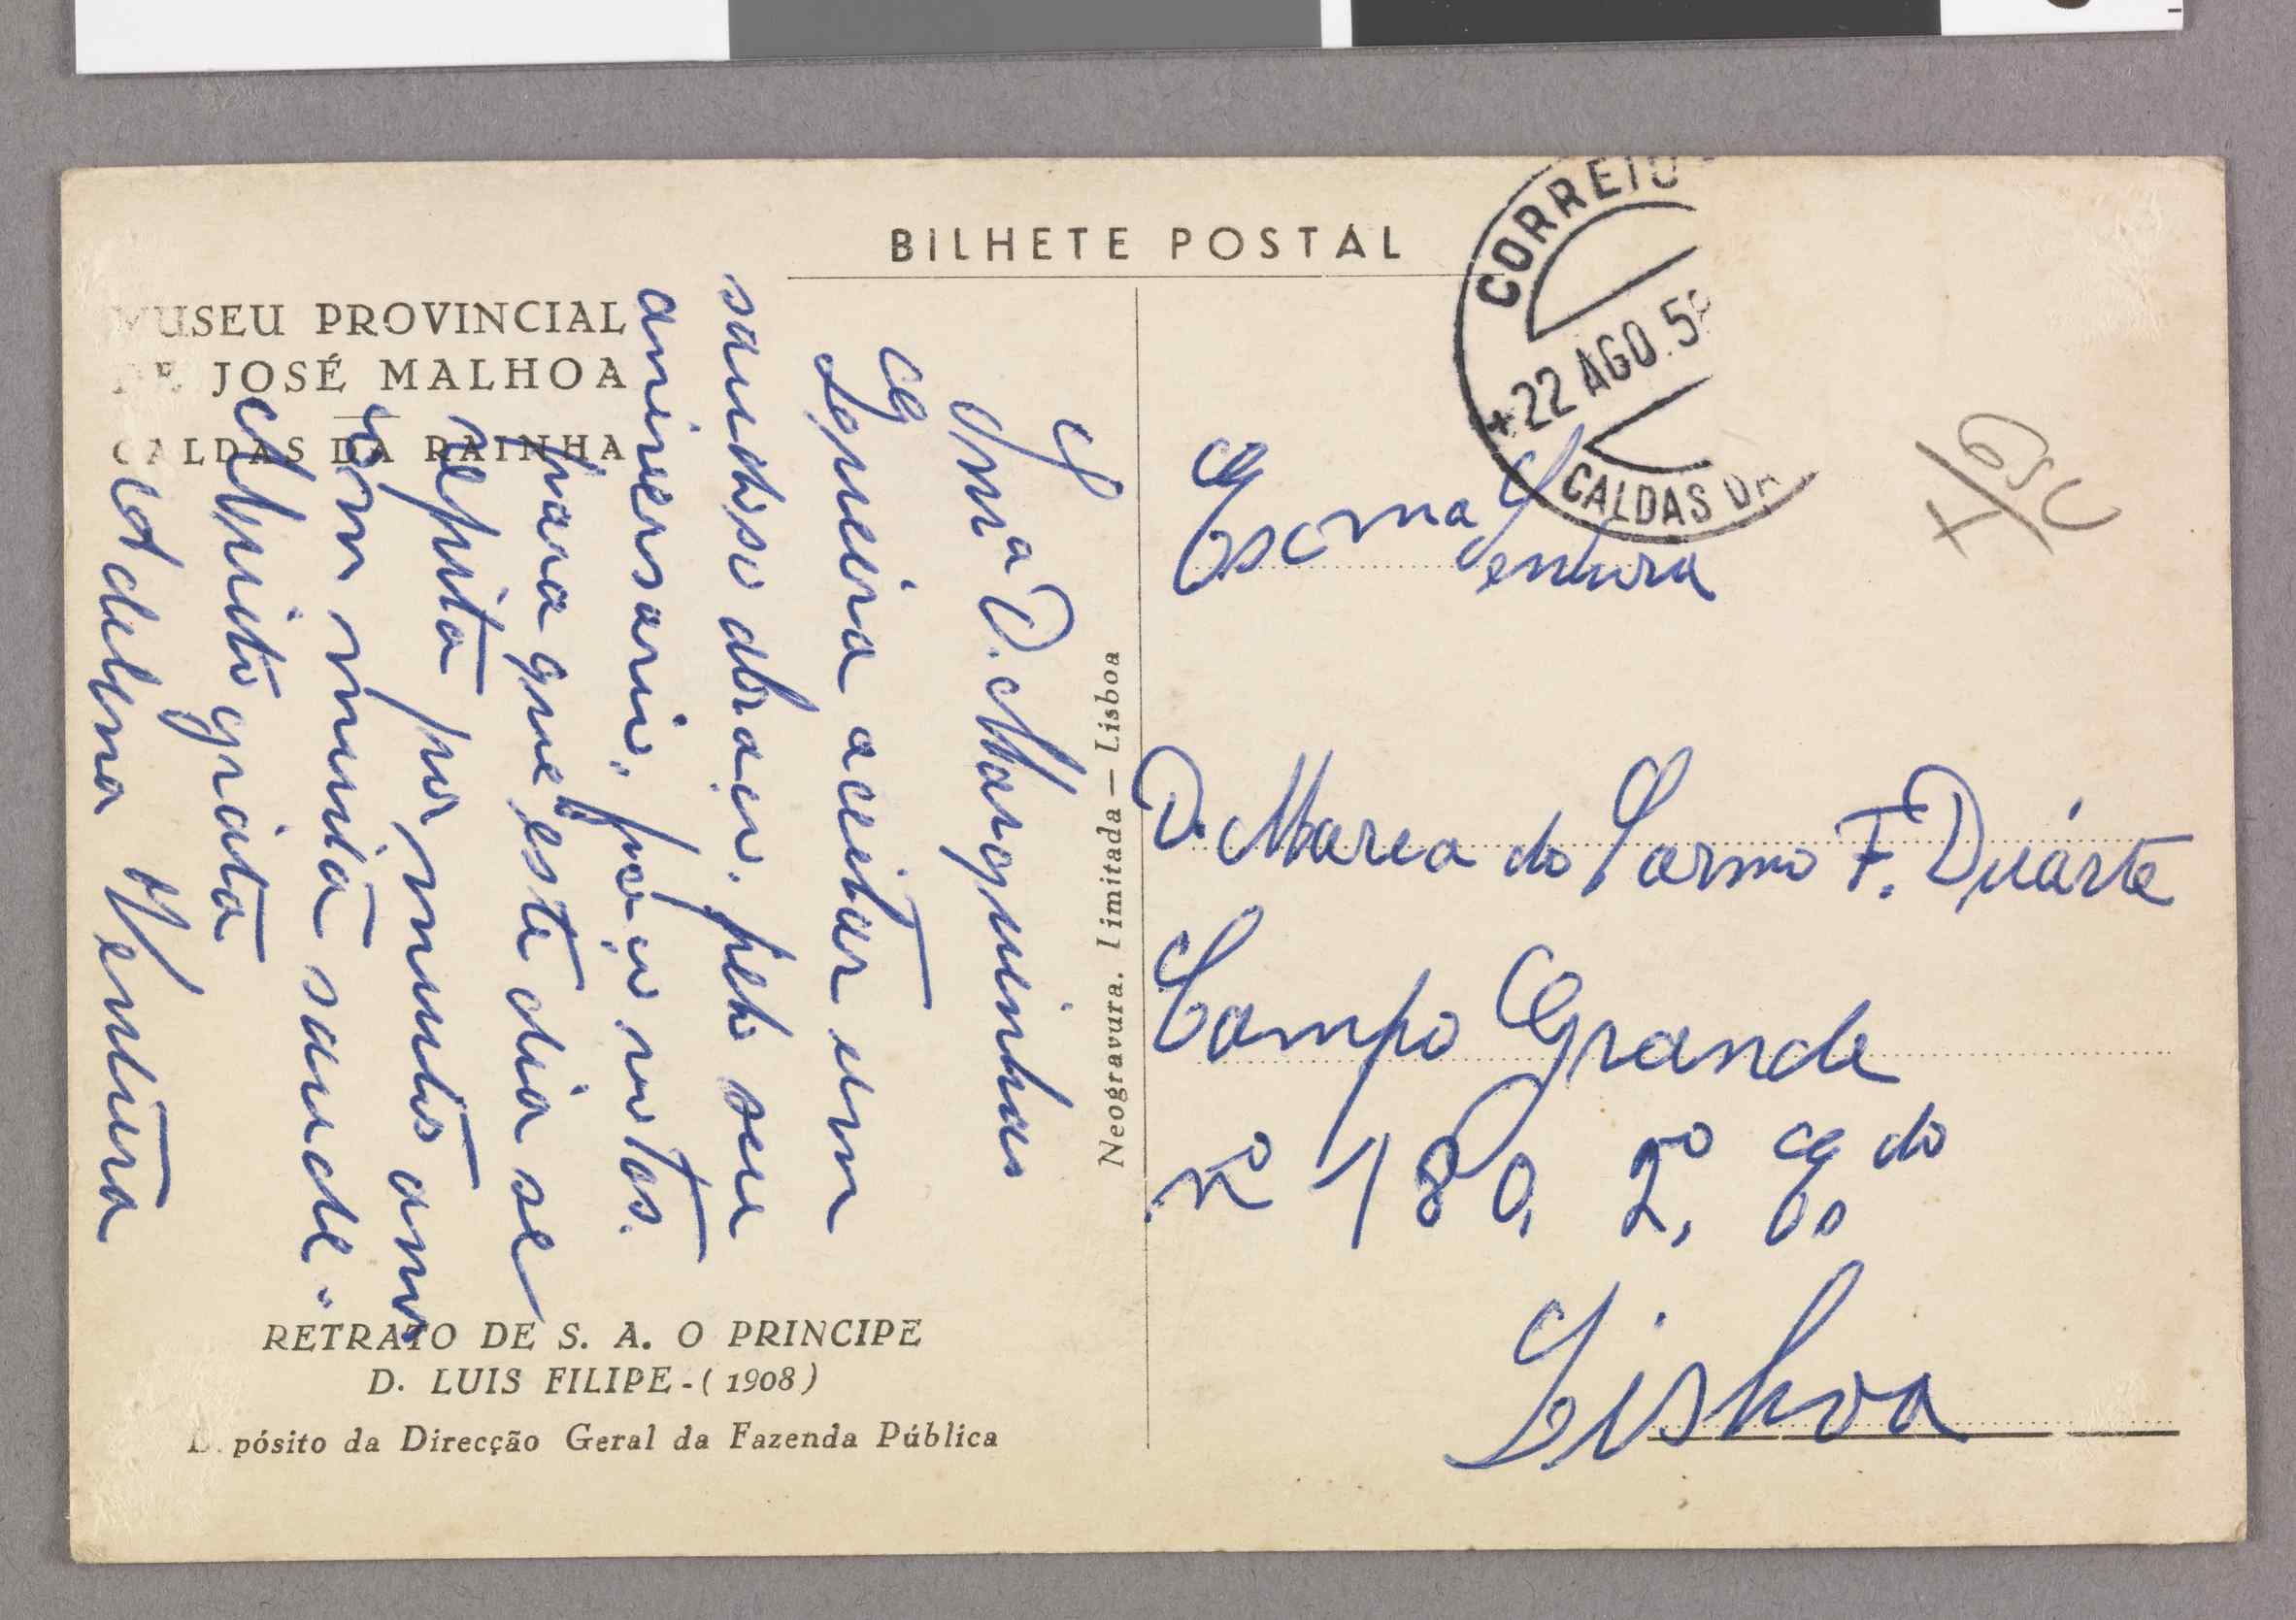 BILHETE POSTAL
MUSEU PROVINCIAL
DE JOSÉ MALHOA
CALDAS DA RAINHA
Snra D. Mariquinhas
Queira aceitar um
saudoso abraço, pelo seu
aniversario, faço votos.
para que este dia se
repita por muitos anos
com muita saude.
Muito grata
Adelina Ventura
RETRATO DE S. A. O PRINCIPE
D. LUIS FILIPE - (1908)
Depósito da Direcção Geral da Fazenda Pública
Neogravura. Limitada — Lisboa
CORREIO
22 AGO. 5
CALDAS DA
Excma Senhora
D. Maria do Carmo F. Duárte
Campo Grande
nº 180, 2º, Eq do
Lisboa